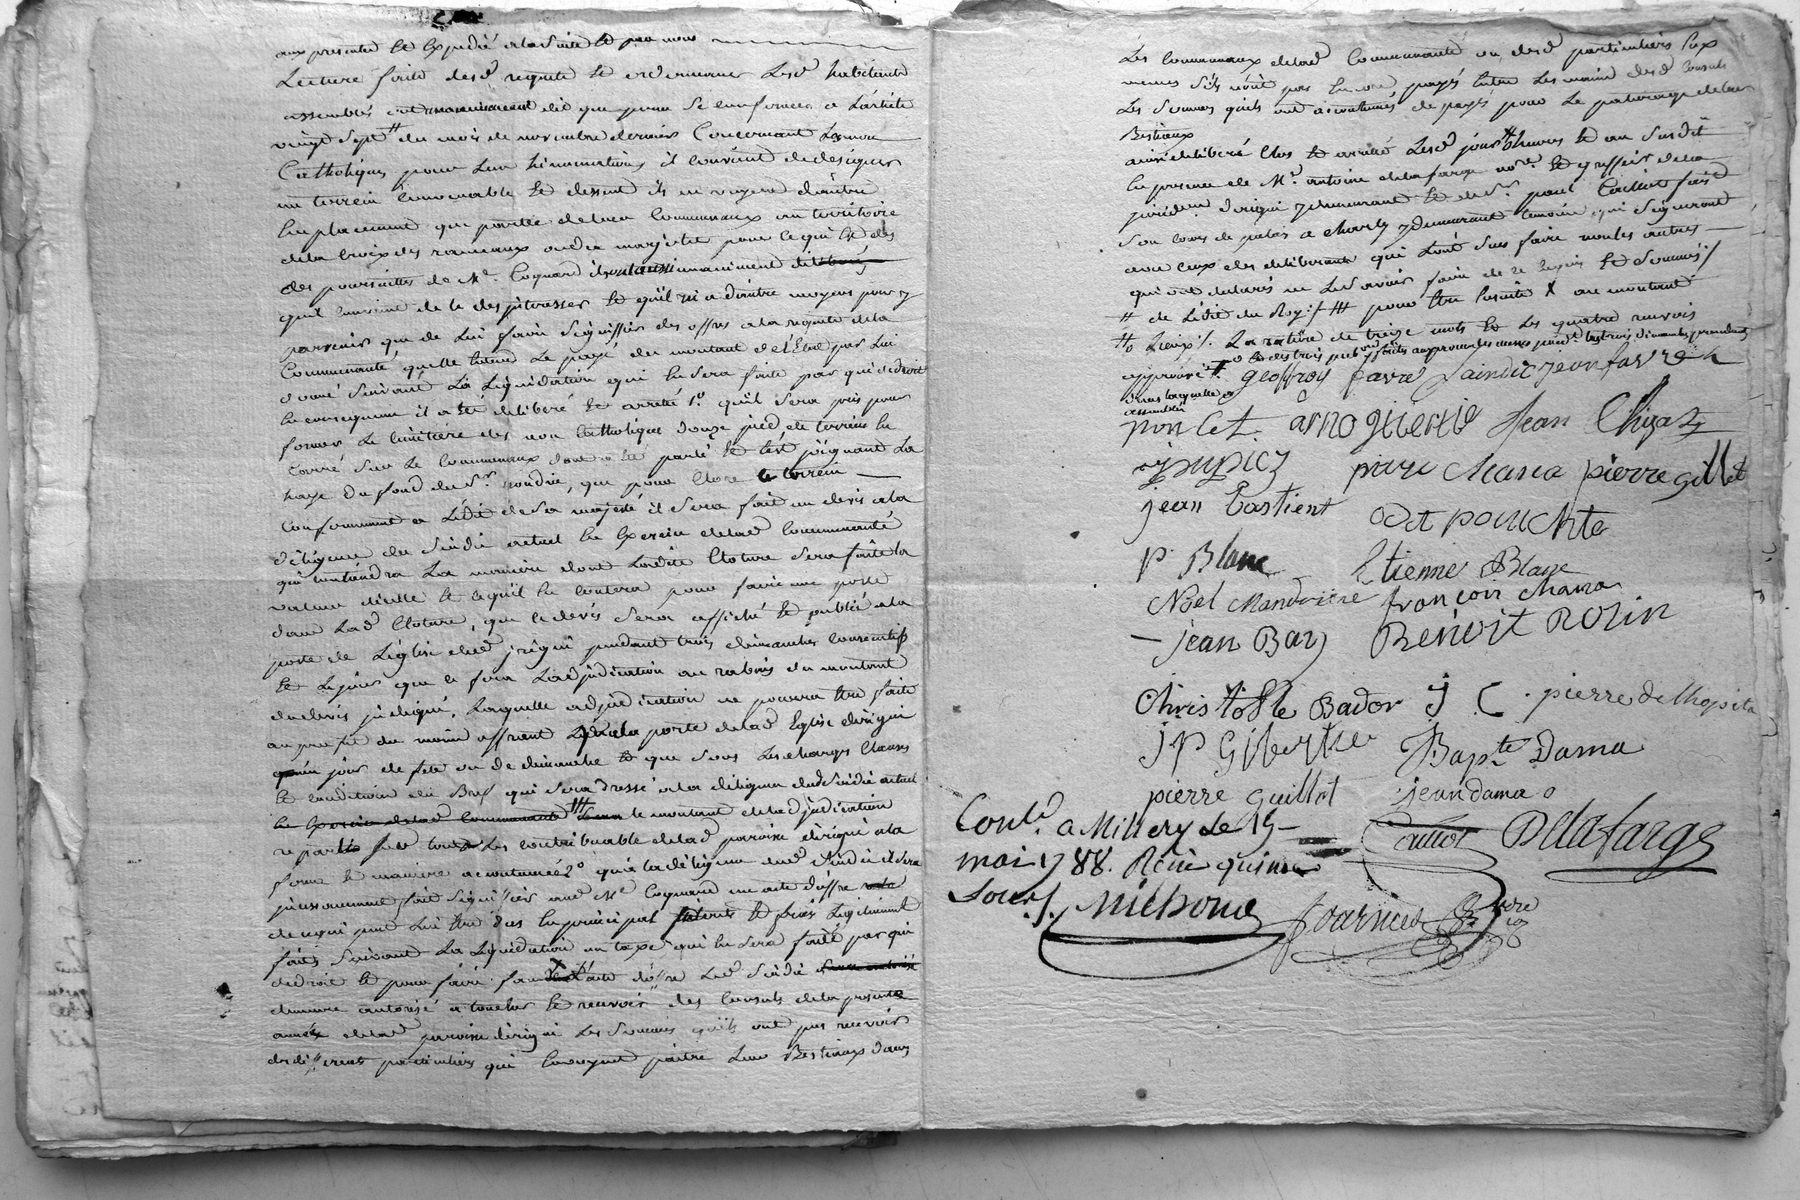 aux presentes et Expedié a la suite par nous
Lecture faite desd requete et ordonnance Lesd habitants
assemblés ont unanimement dit que pour se conformer a L'artite
vingt Sept du mois de novembre dernier Concernant Les non
Catholiques pour Leur hinumation, il convient de designer
un terrein convenable et dessent ils ny voyent d'autre
Emplacement que partie de leur Communaux au territoire
de la Croix des rameaux pour ce qui Est des
des poursuittes de Mr. Coquard ils ont aussi unaniment
quil Convient de le desjnteresser et qu'il ni a d'autre moyens pour y
parvenir que de Lui faire signiffier des offres a la requete de la
Communauté quelle Entend Le payé du montant de L'Etat par Lui
donné suivant La Liquidation qui En Sera faite par qui de droit
En consequence il a Eté deliberé et arreté 1º qu'il Sera pris pour
former Le Cimetiere des non Catholique douze pied de terrein En
Carré Sur Le Communaux dont a Eté parlé et joignant La
haye du fond du Sr. que pour Clore le terrein
Conformement a L'édit de Sa majesté il Sera fait un devis a la
diligence du Sindic actuel En Exercice de lad Communauté
qui contiendra La maniere dont Ladite Cloture Sera faite la
valeur d'icelle et ce quil En coutera pour faire une porte
dans Lad Cloture, que ce devis Sera affiché et publié a la
porte de L'église dud jrigni pendant trois dimanches consecutifs
et Le jour que se fera L'adjudication au rabais du montant
du devis judiqué, Laquelle adjudication ne pourra Etre faite
au profit du moins offrant a la porte de lad Eglise dirigni
jour de fete ou de dimanche et que sous Les charges Clauses
et condition du Bref qui Sera dressé a la diligence dud Sindic actuel
En Exercice de lad Communauté le montant de lad adjudication
repartie Sur tous Les contribuable de lad paroisse dirigni a la
forme et maniere acoutumée 2º qu'a la diligence dud Sindic il Sera
jncessamment fait Signiffier aud Mr Coquard un acte d'offre
de ce qui peut Lui Etre dus En principal et frais Legitiment
faits Suivant La Liquidation ou taxe qui En Sera faite par qui
de droit et pour faire L'acte d'offre Led Sindic
demeure autorisé a toucher et recevoir des Consuls de la presente
année de lad paroisse dirigni Les Sommes qu'ils ont pus recevoir
de differents particuliers qui Envoyent paitre Leur Bestiaux dans
Les Communaux de lad Communauté ou desd particuliers Eux
memes s'ils n'ont pas Encore payés Entre Les mains desd Consuls
Les Sommes qu'ils ont acoutumés de payés pour Le paturage de leur
Bestiaux
ainsi deliberé Clos et arreté Lesd jour heures et an Susdit
En presence de Mr. antoine delafarge nore. et greffier de la
jurisdon dirigni y demeurant et de Sr. paul Cailliot faisd
Son cours de palais a Charly y demeurant temoins qui Signeront
avec ceux des deliberants qui L'ont Sus faire non les autres
qui ont declarés ne Le Savoir faire de ce Enquis et Sommés /.
# de L'édit du Roy /. pour Etre Ensuite X au montant
Lieux /. La rature de treize mots et Les quatre renvois
approuvé geoffroy favre Saindic jean favre
dans laquelle
assemblée
poncet. arnoguienie Jean Chizat
jpupier pierre Masca pierre gillet
jean Bastient odet pouchte
P. Blanc Etienne Blanc
Noel Mandrière françois Chama
jean Bary Benoit Rozin
Christofle Bador J C. pierre de lhopital
JP Giberthe Bapte. Dama
pierre guillot jean dama
Conlé. a Millery Le 19
mai 1788. Reçu quinze
Sous /. Michoud
Cailliot Delafarge
fournier